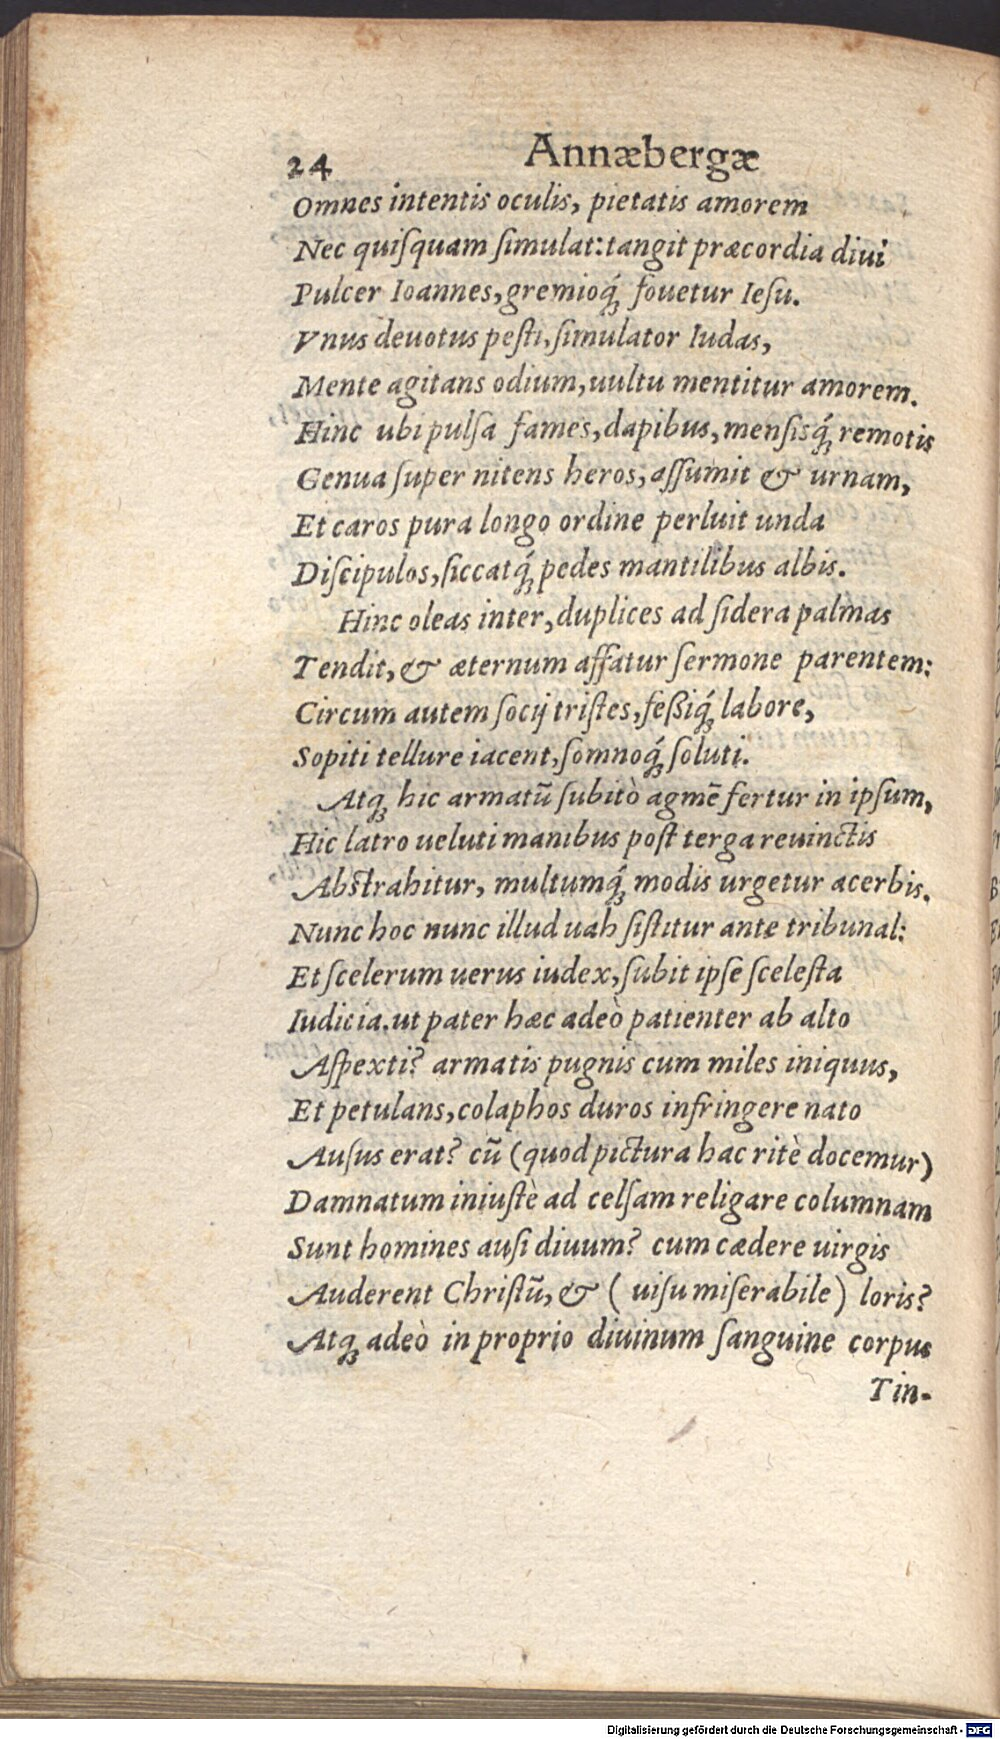 24 Annæbergæ
Omnes intentis oculis, pietatis amorem
Nec quiſquam ſimulat: tangit præcordia diui
Pulcer Ioannes, gremioq́ꝫ fouetur Ieſu.
Vnus deuotus peſti, ſimulator Iudas,
Mente agitans odium, uultu mentitur amorem.
Hinc ubi pulſa fames, dapibus, menſisq́ꝫ remotis
Genua ſuper nitens heros, aſſumit & urnam,
Et caros pura longo ordine perluit unda
Diſcipulos, ſiccatq́ꝫ pedes mantilibus albis.
Hinc oleas inter, duplices ad ſidera palmas
Tendit, & æternum affatur ſermone parentem:
Circum autem ſocij triſtes, feßiq́ꝫ labore,
Sopiti tellure iacent, ſomnoq́ꝫ ſoluti.
Atqꝫ hic armatū ſubitò agmē fertur in ipſum,
Hic latro ueluti manibus poſt terga reuinctis
Abſtrahitur, multumq́ꝫ modis urgetur acerbis.
Nunc hoc nunc illud uah ſiſtitur ante tribunal:
Et ſcelerum uerus iudex, ſubit ipſe ſceleſta
Iudicia. ut pater hæc adeò patienter ab alto
Aſpexti? armatis pugnis cum miles iniquus,
Et petulans, colaphos duros infringere nato
Auſus erat? cū (quod pictura hac ritè docemur)
Damnatum iniuſtè ad celſam religare columnam
Sunt homines auſi diuum? cum cædere uirgis
Auderent Chriſtū, & ( uiſu miſerabile) loris?
Atqꝫ adeò in proprio diuinum ſanguine corpus
Tin-
Digitalisierung gefördert durch die Deutsche Forschungsgemeinschaft - DFG